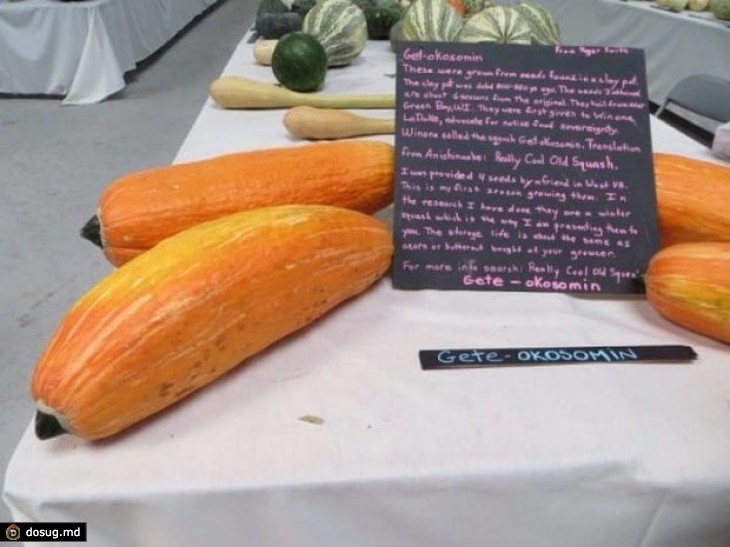 Get-okosomin From Roger Smith
These were grown from seeds found in a clay pot.
The clay pot was date 800-860 yr ago. The seeds I obtained
are about 6 seasons from the original. They hail from near
Green Bay, WI. They were first given to Winona
LaDuke, advocate for native food sovereignty.
Winona called the squash Gete-okosomin. Translation
from Anishinaabe: Really Cool Old Squash.
I was provided 4 seeds by a friend in West VA.
This is my first season growing them. In
the research I have done they are a winter
squash which is the way I am presenting them to
you. The storage life is about the same as
acorn or butternut bought at your grocer.
For more info search: Really Cool Old Squash
Gete - okosomin
Gete-OKOSOMIN
dosug.md